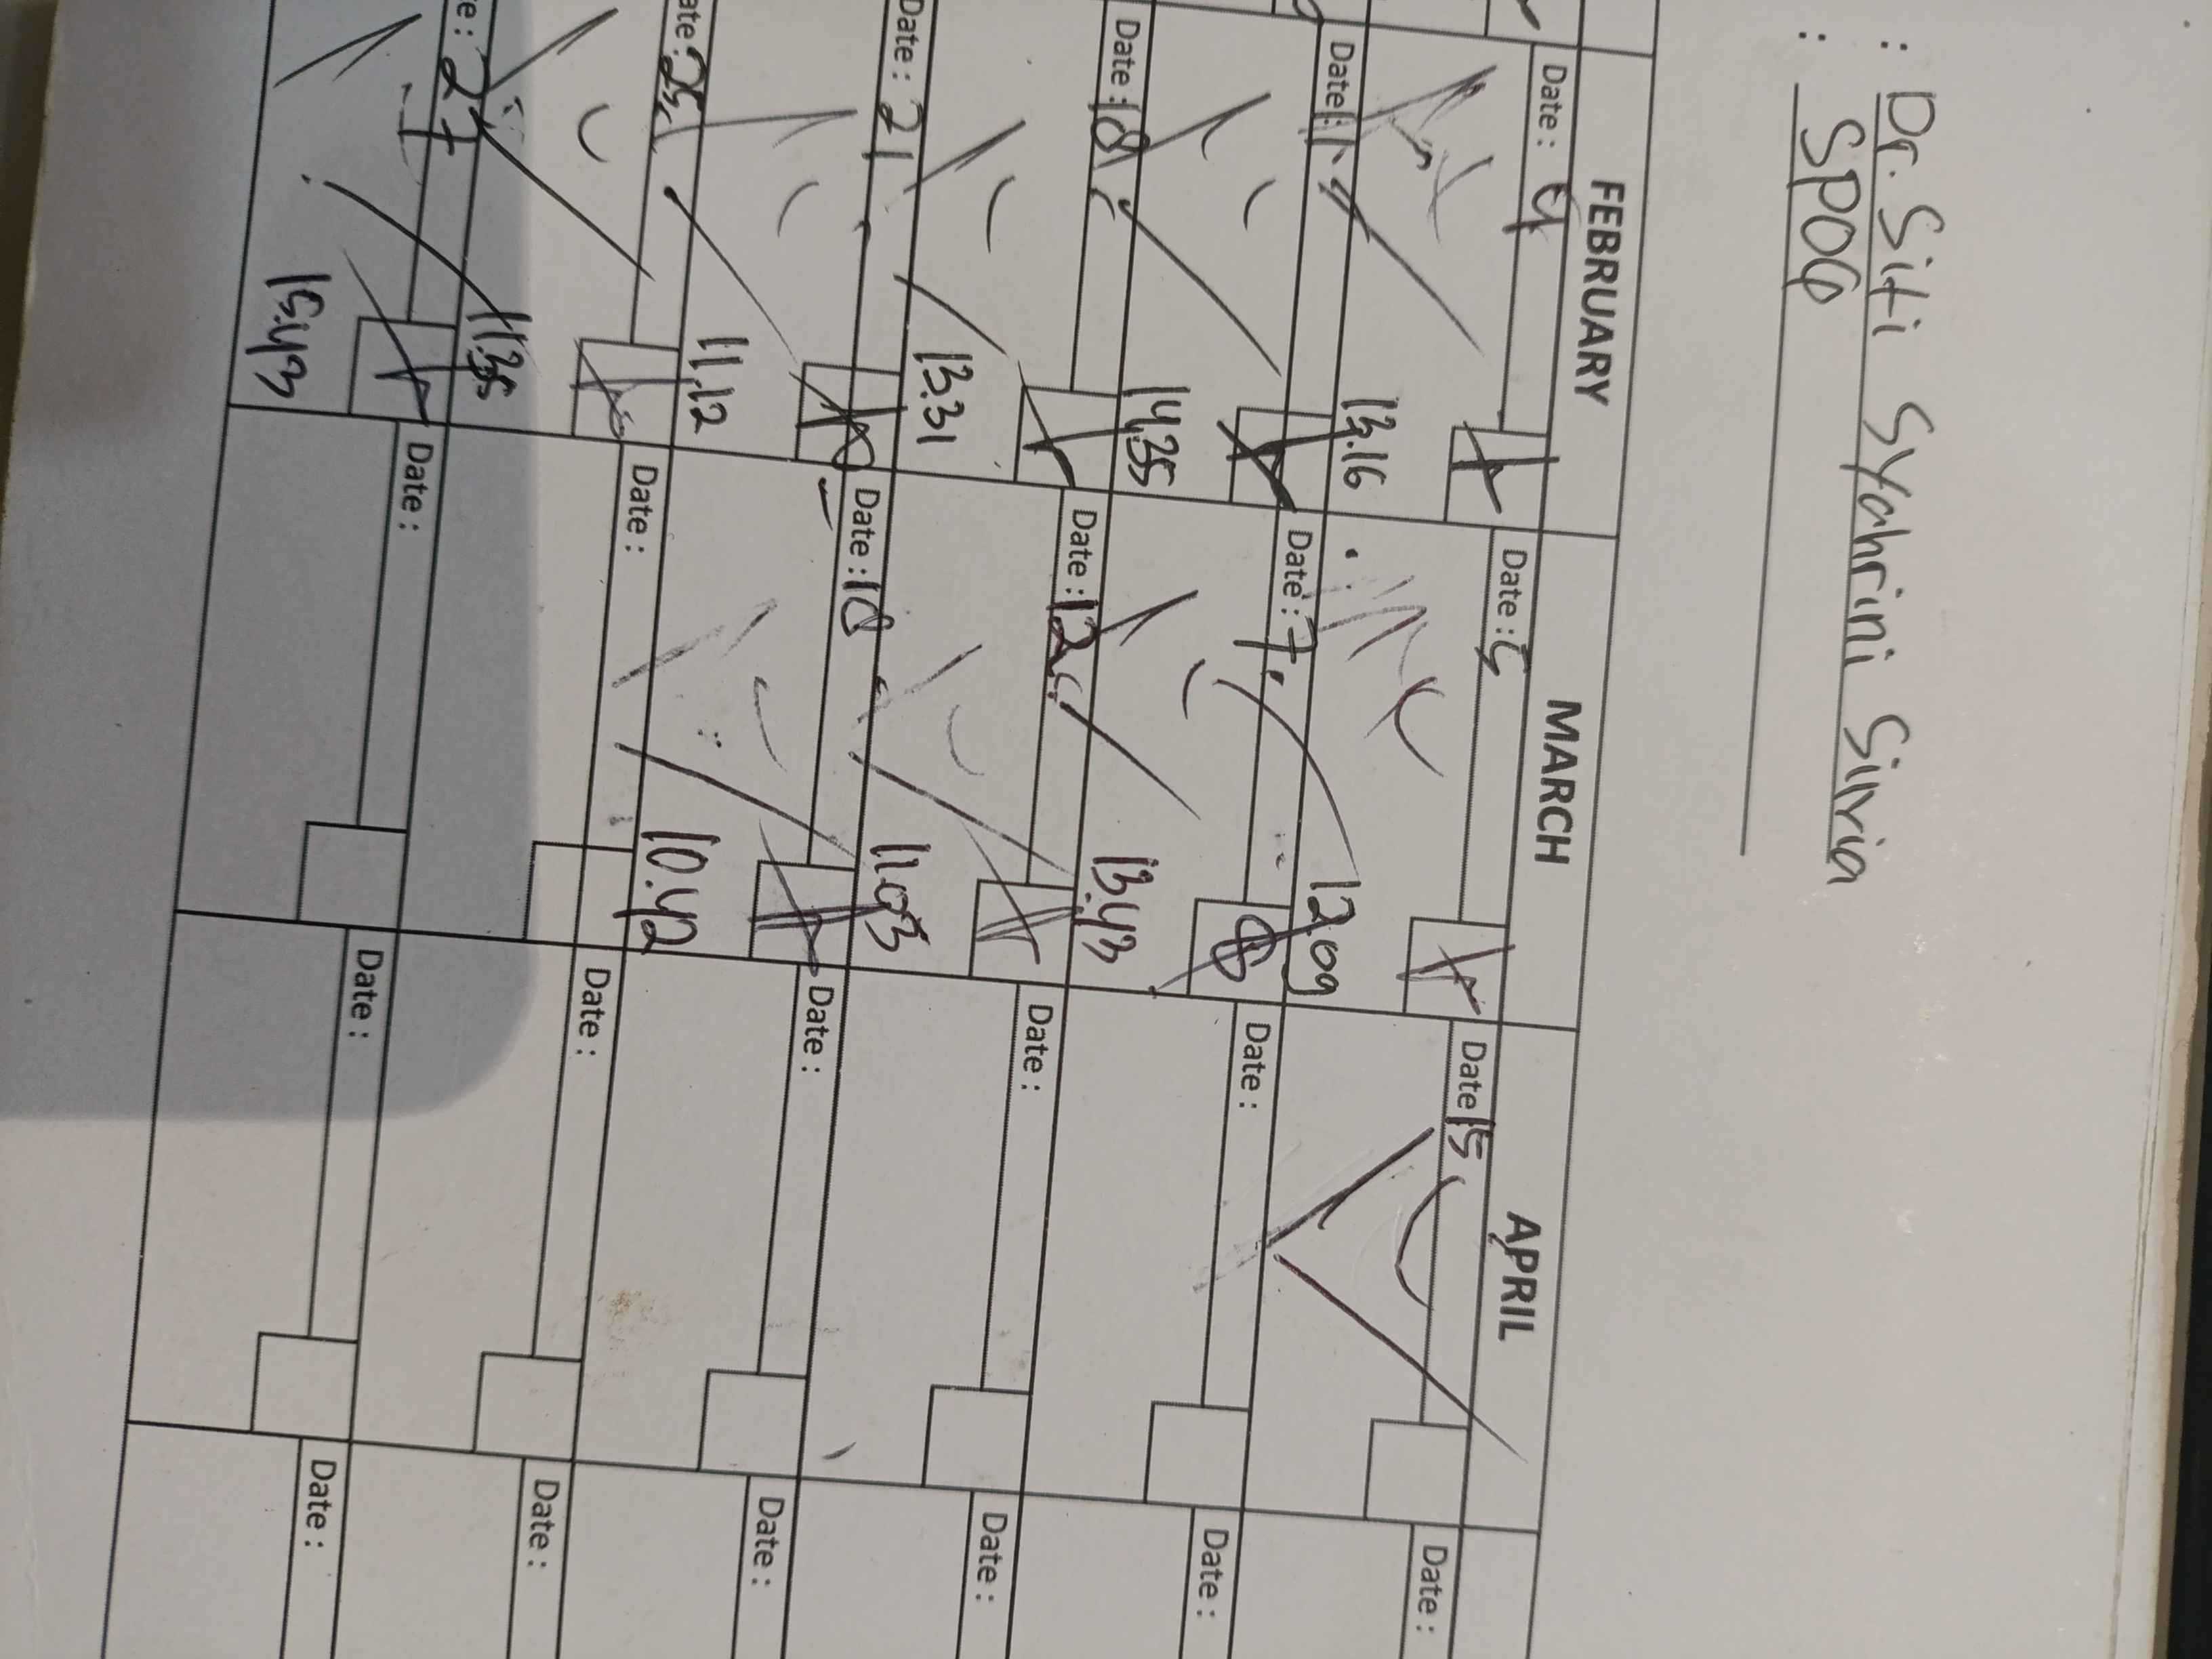 : Dr. Siti Syahrini Sinria
: SPOG
FEBRUARY MARCH APRIL
Date : 4 Date : 5 Date 15 Date :
13.16 12.09
Date : 14 Date : 7 Date : Date :
14.35 13.43
Date : 18 Date : 12 Date : Date :
13.31 11.03
Date : 21 Date : 18 Date : Date :
11.12 10.42
ate : 25 Date : Date : Date :
11.35
e : 27 Date : Date : Date :
15.43